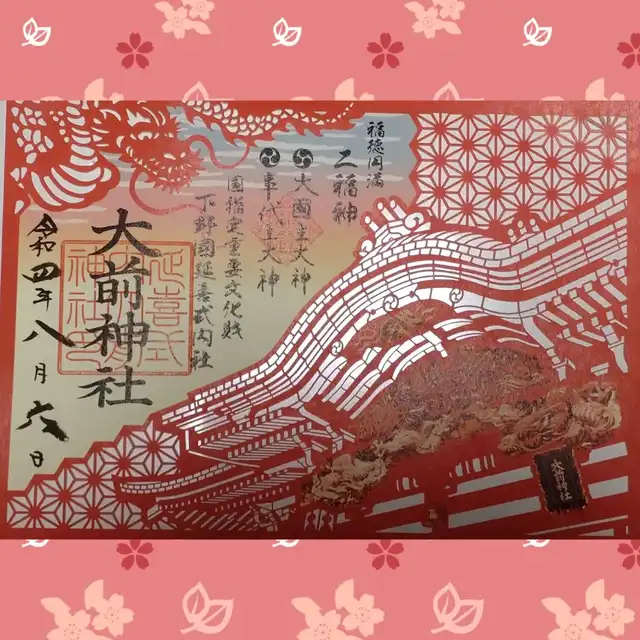 福徳円満
二福神
大國主大神
事代主大神
国指定重要文化財
下野國延喜式内社
大前神社
令和四年八月六日
延喜式
大前神社